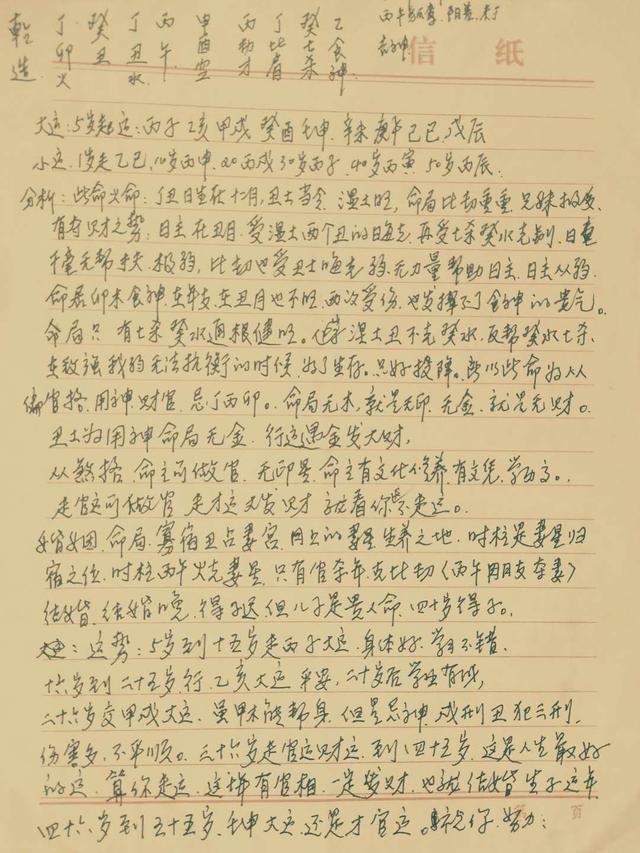 乾造 丁卯火 癸丑 丁丑水 丙午 甲酉空 丙劫才 丁比肩 癸七杀 乙食神
信纸
大运:5岁起运:丙子 乙亥 甲戌 癸酉 壬申 辛未 庚午 己巳 戊辰
小运 1岁走乙巳,10岁丙申 20丙戌 30岁丙子 40岁丙寅 50岁丙辰
分析:此命火命:丁丑日生在十二月,丑土当令 湿土旺,命局比劫重重 兄妹
有夺财之势:日主在丑月 受湿土两个丑的晦克 再受七杀癸水克制 日
干毫无帮扶 极弱,比劫也受丑土晦克 弱无力量帮助日主 日主从弱
命局卯木食神 在年支 在丑月也不旺 两次受伤 也发挥不了食神的贵气。
命局只有七杀癸水通根健旺。湿土丑不克癸水 反帮癸水七杀、
在敌强我弱无法抗衡的时候 为了生存。只好投降。所以此命为从
偏官格 用神财官 忌丁丙卯。命局无木,就是无印 无金 就是无财。
丑土为用神命局无金 行运遇金发大财,
从煞格 命主可做官 无印星 命主有文化修养 有文凭 学历高。
走官运可做官 走才运大发财 就看你怎么走运。
婚姻 命局 寡宿丑占妻宫 月上的妻星生养之地 时柱是妻星归
宿之位 时柱丙午火克妻星 只有官杀年 克比劫《丙午朋友夺妻》
结婚 结婚晚 得子迟 但儿子是贵人命 四十岁得子。
运势:5岁到十五岁走丙子大运 身体好 学习不错
十六岁到二十五岁行 乙亥大运 平安,二十岁后学业有成,
二十六岁交甲戌大运 虽甲木能帮身 但是忌神 戌刑丑犯三刑
伤害多 不平顺。三十六岁走官运财运 到四十五岁 这是人生最好
的运 算你走运 这样有官相 一定发财 也能结婚生子这年
四十六岁到五十五岁 壬申大运 还是才官运。努力:
页